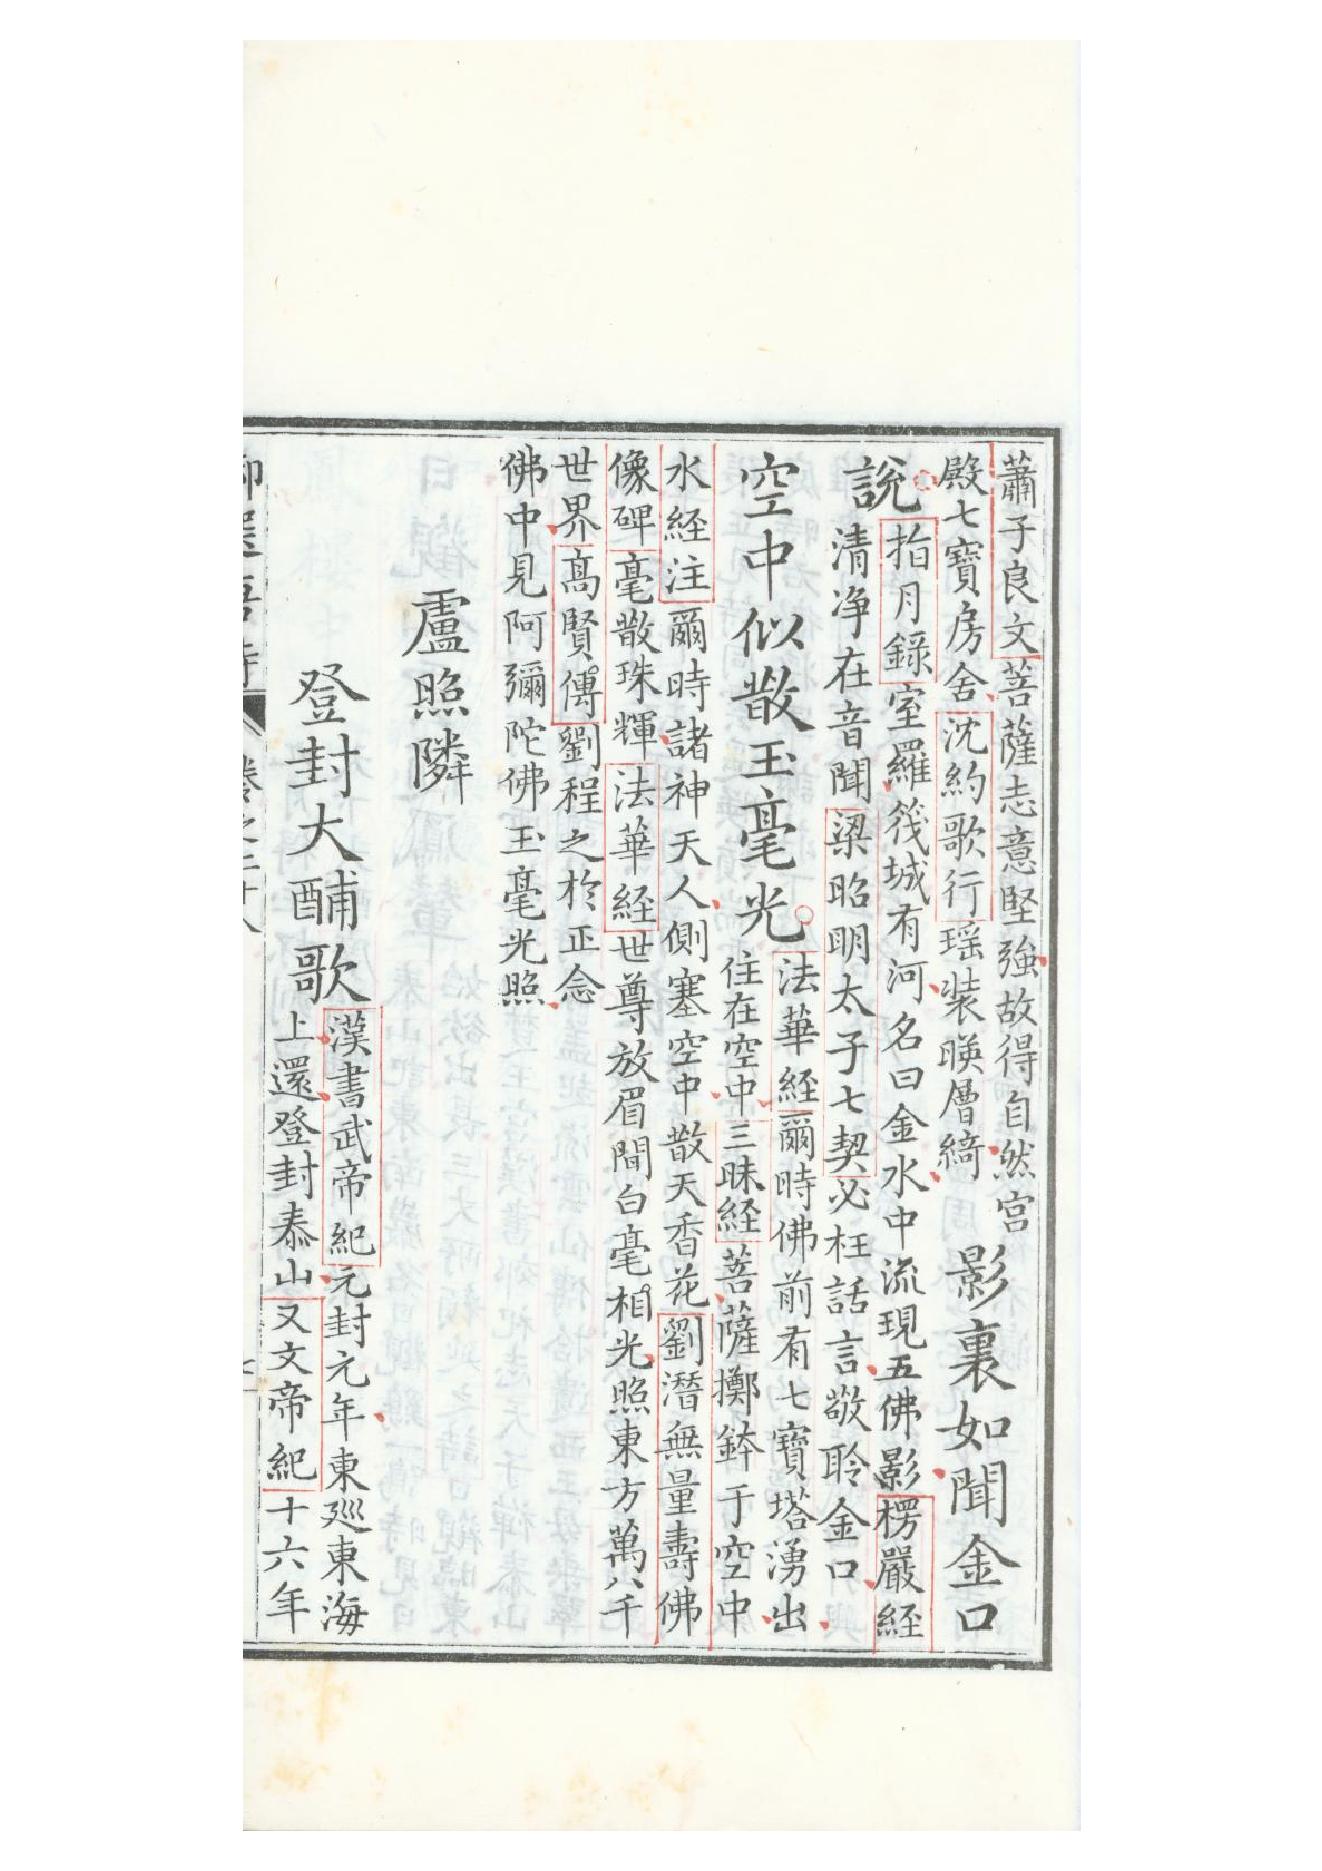 蕭子良文菩薩志意堅強故得自然宮
殿七寳房舍沈約歌行瑶装暎層綺
影裏如聞金口
說
指月錄室羅筏城有河名曰金水中流現五佛影楞嚴経
清净在音聞梁昭明太子七契必枉話言敬聆金口
空中似散玉毫光
法華経爾時佛前有七寳塔湧出
住在空中三昧経菩薩擲鉢于空中
水経注爾時諸神天人側塞空中散天香花劉潛無量壽佛
像碑毫散珠輝法華経世尊放眉間白毫相光照東方萬八千
世界高賢傳劉程之於正念
佛中見阿彌陀佛玉毫光照
盧照隣
登封大酺歌
漢書武帝紀元封元年東廵東海
上還登封泰山又文帝紀十六年